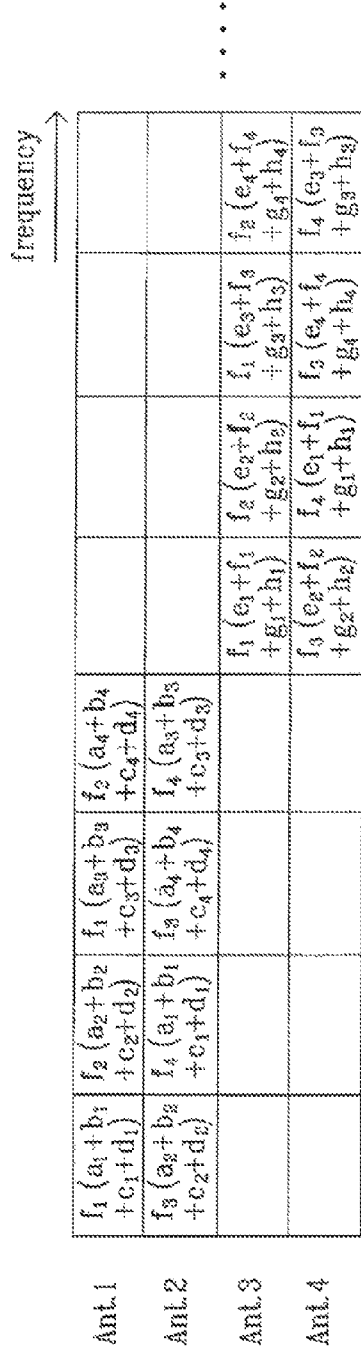 frequency
Ant.1
f₁ (a₁+b₁
+c₁+d₁)
f₂ (a₂+b₂
+c₂+d₂)
f₁ (a₃+b₃
+c₃+d₃)
f₂ (a₄+b₄
+c₄+d₄)
Ant.2
f₃ (a₂+b₂
+c₂+d₂)
f₄ (a₁+b₁
+c₁+d₁)
f₃ (a₄+b₄
+c₄+d₄)
f₄ (a₃+b₃
+c₃+d₃)
Ant.3
f₁ (e₁+f₁
+g₁+h₁)
f₂ (e₂+f₂
+g₂+h₂)
f₁ (e₃+f₃
+g₃+h₃)
f₂ (e₄+f₄
+g₄+h₄)
Ant.4
f₃ (e₂+f₂
+g₂+h₂)
f₄ (e₁+f₁
+g₁+h₁)
f₃ (e₄+f₄
+g₄+h₄)
f₄ (e₃+f₃
+g₃+h₃)